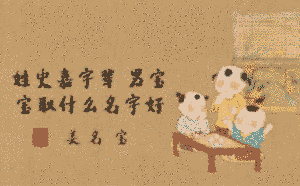 姓史嘉字辈 男宝
宝取什么名字好
美名宝